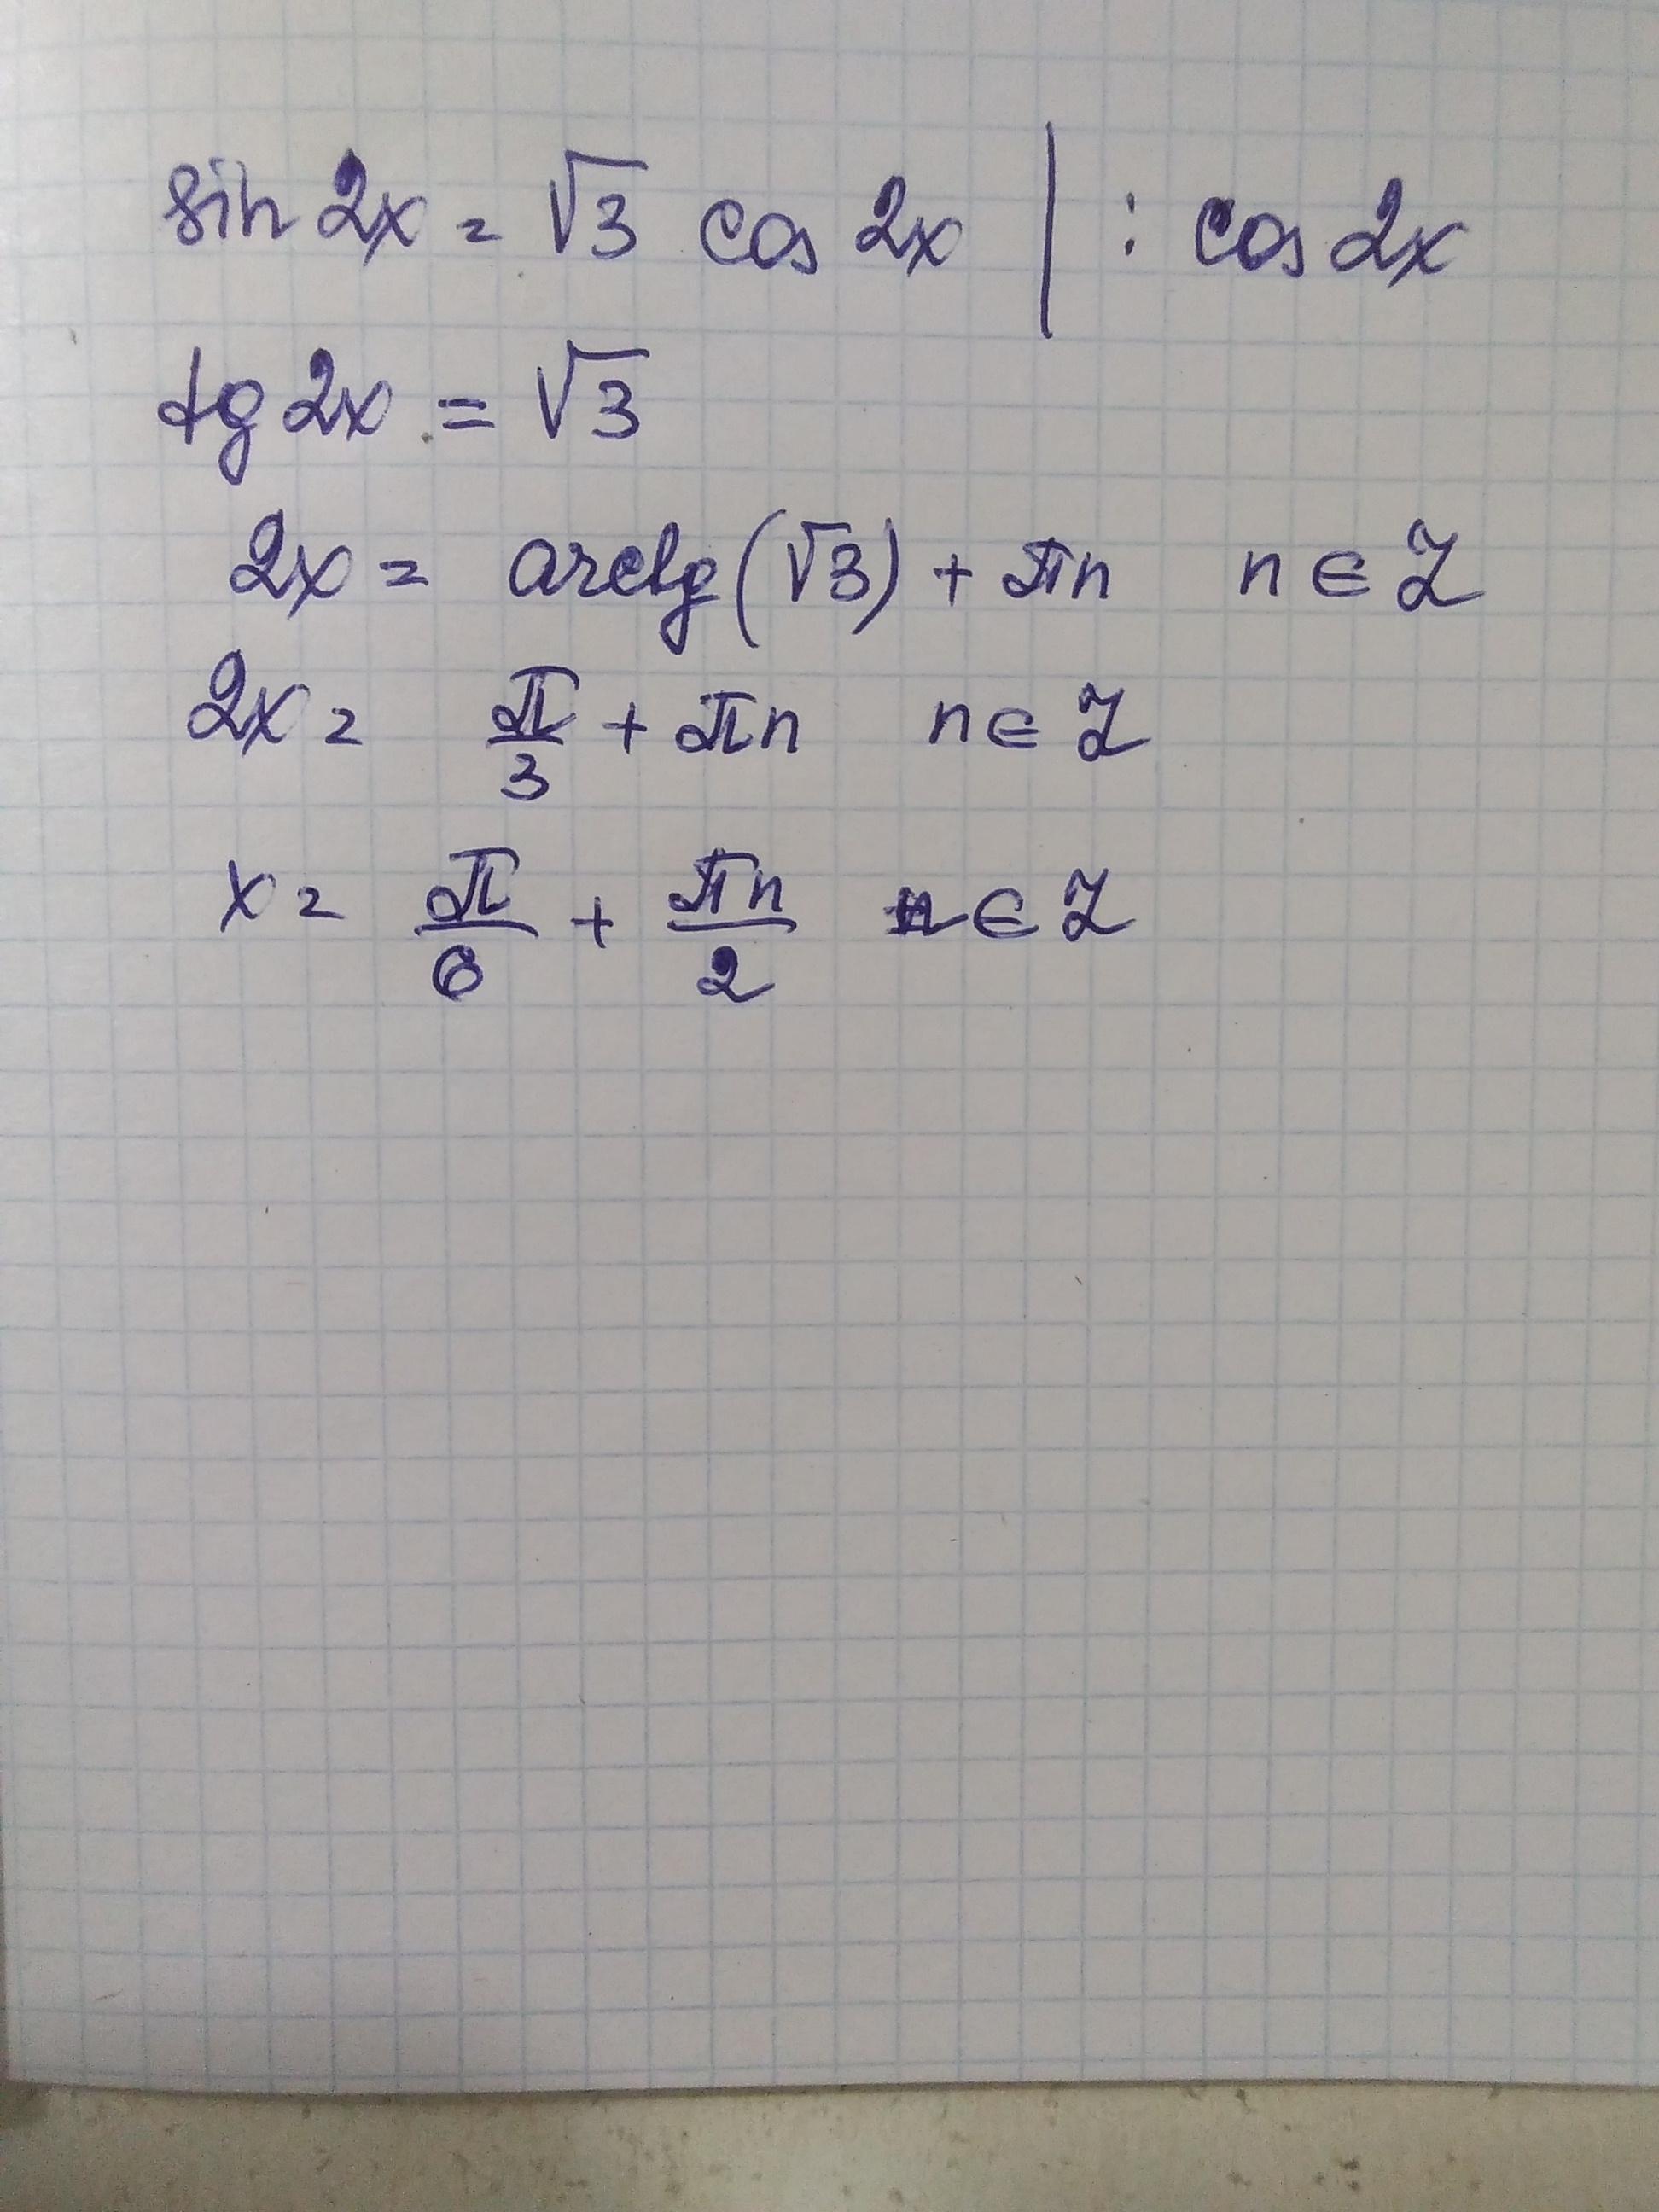 sin 2x = √3 cos 2x | : cos 2x
tg 2x = √3
2x = arctg(√3) + πn n ∈ Z
2x = π/3 + πn n ∈ Z
x = π/6 + πn/2 n ∈ Z